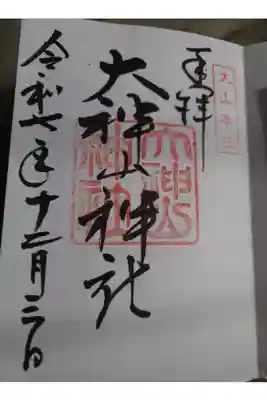 奉拝
大神山神社
大神山
神社
令和七年十二月三日